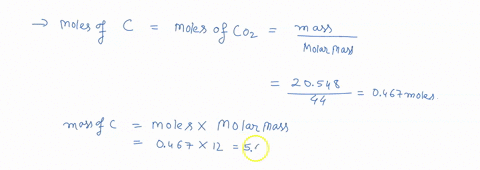 → moles of C = moles of CO2 = mass / Molar Mass
= 20.548 / 44 = 0.467 moles
mass of C = moles × Molar Mass
= 0.467 × 12 = 5.